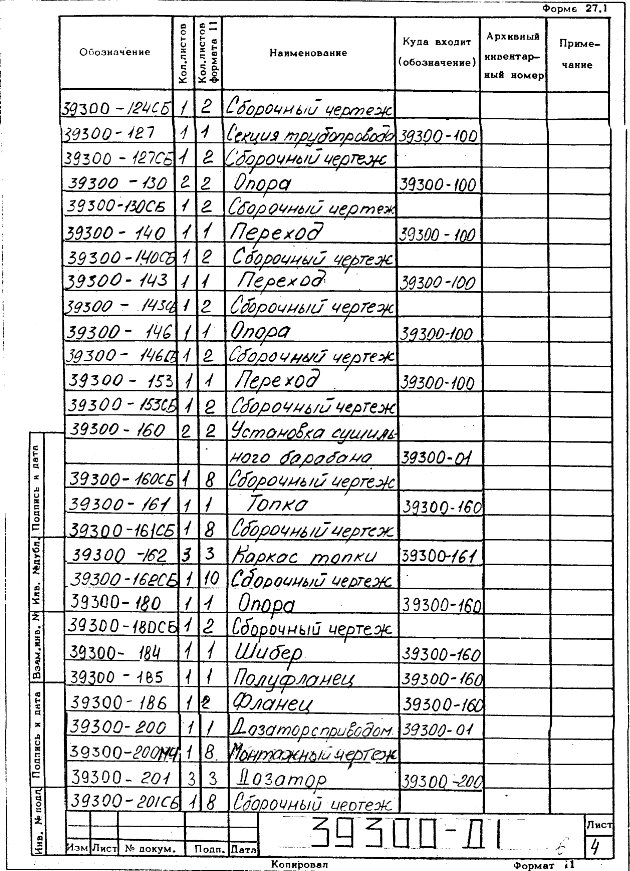 Форма 27.1
Обозначение Кол.листов Кол.листов формата 11 Наименование Куда входит (обозначение) Архивный инвентарный номер Примечание
39300-124СБ 1 2 Сборочный чертеж
39300-127 1 1 Секция трубопровода 39300-100
39300-127СБ 1 2 Сборочный чертеж
39300-130 2 2 Опора 39300-100
39300-130СБ 1 2 Сборочный чертеж
39300-140 1 1 Переход 39300-100
39300-140СБ 1 2 Сборочный чертеж
39300-143 1 1 Переход 39300-100
39300-143СБ 1 2 Сборочный чертеж
39300-146 1 1 Опора 39300-100
39300-146СБ 1 2 Сборочный чертеж
39300-153 1 1 Переход 39300-100
39300-153СБ 1 2 Сборочный чертеж
39300-160 2 2 Установка сушиль-
ного барабана 39300-01
39300-160СБ 1 8 Сборочный чертеж
39300-161 1 1 Топка 39300-160
39300-161СБ 1 8 Сборочный чертеж
39300-162 3 3 Каркас топки 39300-161
39300-162СБ 1 10 Сборочный чертеж
39300-180 1 1 Опора 39300-160
39300-180СБ 1 2 Сборочный чертеж
39300-184 1 1 Шибер 39300-160
39300-185 1 1 Полуфланец 39300-160
39300-186 1 2 Фланец 39300-160
39300-200 1 1 Дозатор с приводом 39300-01
39300-200МЧ 1 8 Монтажный чертеж
39300-201 3 3 Дозатор 39300-200
39300-201СБ 1 8 Сборочный чертеж
Инв. № подл. Подпись и дата Взам.инв. № Инв. №дубл. Подпись и дата
39300-Д1
Лист
4
Изм Лист № докум. Подп. Дата
Копировал Формат 11